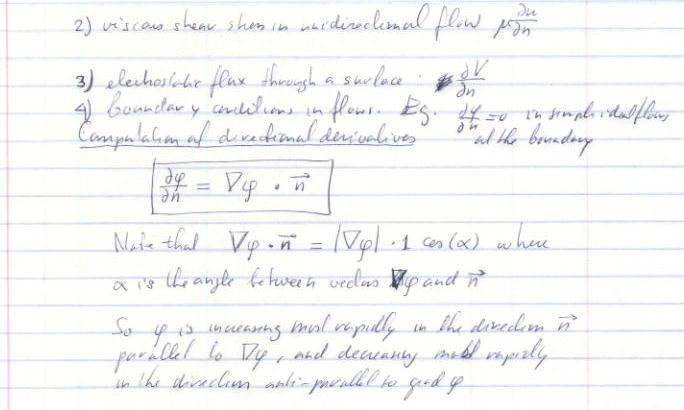 2) viscous shear stress in unidirectional flow μ ∂u/∂n
3) electrostatic flux through a surface : ∂V/∂n
4) boundary conditions in flows. Eg. ∂φ/∂n = 0 in simple ideal flows
at the boundary
Computation of directional derivatives
∂φ/∂n = ∇φ · n⃗
Note that ∇φ · n⃗ = |∇φ| · 1 cos(α) where
α is the angle between vectors ∇φ and n⃗
So φ is increasing most rapidly in the direction n⃗
parallel to ∇φ, and decreasing most rapidly
in the direction anti-parallel to grad φ